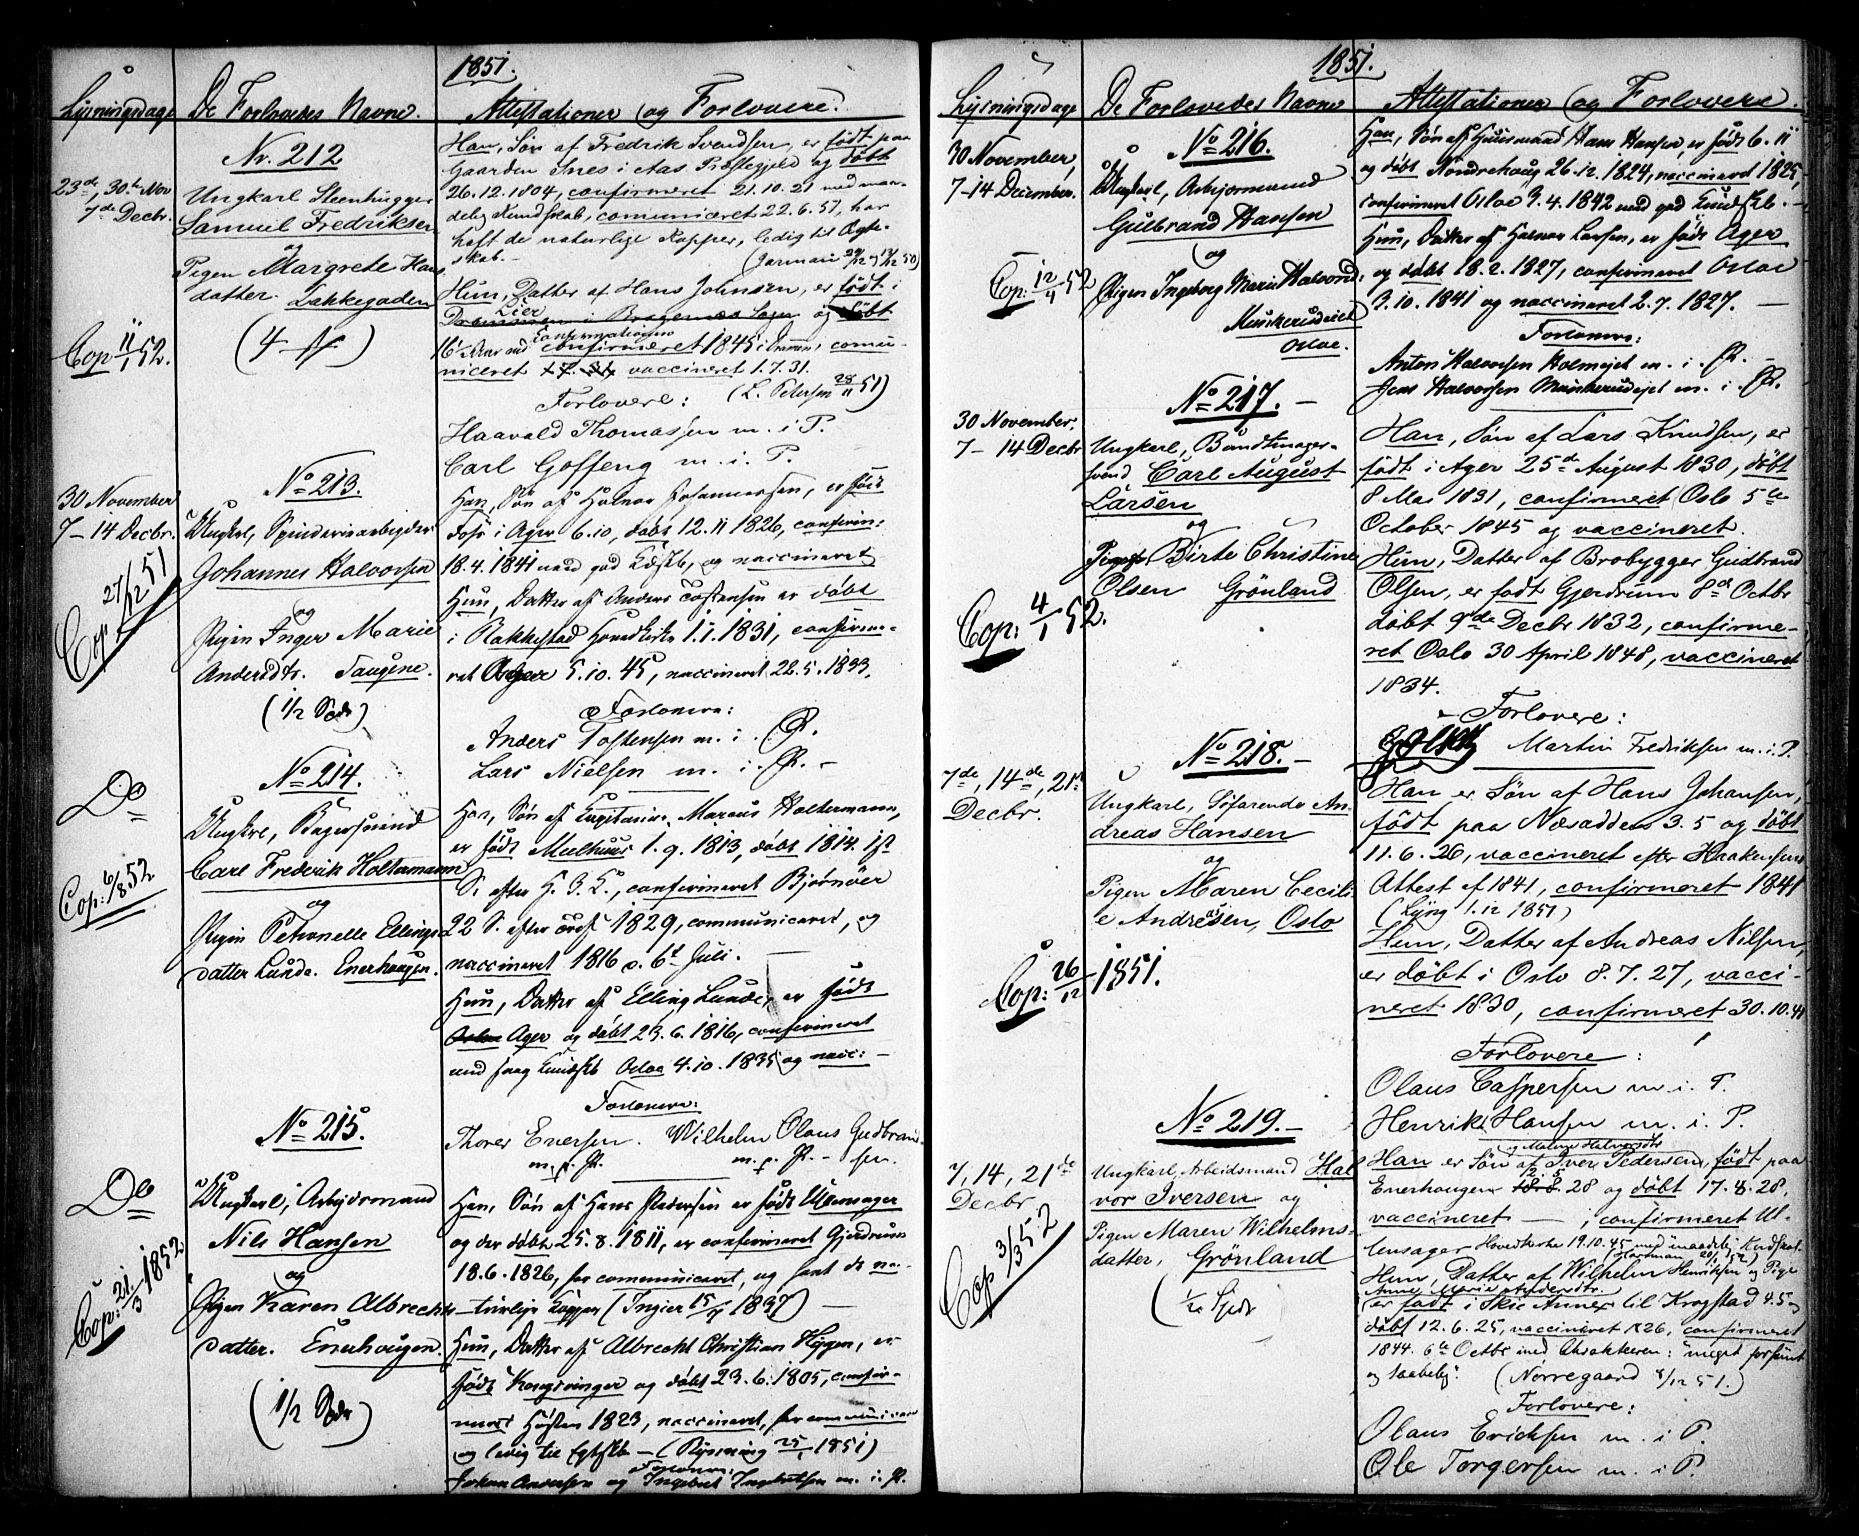 1851.
Lysningsdage De Forlovedes Navne. Attestationer og Forlovere.
Nr. 212
23de, 30te Nov
7de Decbr.
Ungkarl Steenhugger
Samuel Fredriksen
og
Pigen Margrete Hans
datter. Lakkegaden
(4 )
Cop 11/1 52.
Han, Søn af Fredrik Svendsen, er født paa
Gaarden Snes i Aas Præstegjeld og døbt
26.12.1804, confirmeret 21.10.21 med maa-
delig Kundskab, comuniceret 22.6.51, har
haft de naturlige Kopper, ledig til Ægte-
skab.
Hun, Datter af Hans Johnsen, er født i
Lier
Drammen i Bragernes Sogn og døbt
confirmeret 1845 i Drammen, comu-
niceret vaccineret 1.7.31.
(L. Petersen 28/11 51)
Forlovere:
Haavald Thomassen m. i P.
Carl Goffeng m. i. P.
No 213.
30 November
7-14 Decbr.
Ungkrl, Spinderiarbeider
Johannes Halvorsen
og
Pigen Inger Marie
Andersdtr. Taugene.
(1/2 Spdr)
Cop 27/12 51
Han, Søn af Halvor Johannessen, er født
i Ager 6.10, døbt 12.11 1826, confirm:
18.4.1841 med god Kdskb, og vaccineret
Hun, Datter af Anders Tostensen er døbt
i Rakkestad Hovedkirke 1.1.1831, confirme-
ret Ager 5.10.45, vaccineret 22.5.1833.
Forlovere:
Anders Tostensen m. i. P.
Lars Nielsen m. i. P. -
No 214.
Do
Ungkrl, Bagersvend
Carl Frederik Holtermann
og
Pigen Petronelle Ellings
datter Lunde. Enerhougen.
Cop: 6/8 52
Han, Søn af Capitain Marcus Holtermann,
er født Meelhuus 1.9.1813, døbt 1814. 1st
S. efter H. 3. K., confirmeret Bjørnøer
22 S. efter Tref 1829, communiceret, og
vaccineret 1816 d. 6t Juli.
Hun, Datter af Elling Lunde, er født
Oslo Ager og døbt 23.6.1816, confirmeret
med svag Kundskb Osloe 4.10.1835 og vacc: -
Forlovere:
Thorer Enersen. Wilhelm Olaus Gudbrand-
m. p. P. m. p. P. - sen.
No 215.
Do
Ungkarl, Arbeidsmand
Nils Hansen
og
Pigen Karen Albrechts
datter. Enerhougen.
(1/2 Spdr)
Cop: 21/3 1852.
Han, Søn af Hans Pedersen er født Ullensager
og der døbt 25.8.1811, er confirmeret Gjerdrum
18.6.1826, har communiceret, og havt de na-
turlige Kopper (Ingier 15/1 1837)
Hun, Datter af Albrecht Christian Hygen, er
født Kongsvinger og døbt 23.6.1805, confir-
meret Høsten 1823, vaccineret, har communiceret
og ledig til Egtskb - (Rysning 25/1 1851)
Forlovere:
Johan Andersen og Ingebret Ingebretsen m. i. P.
1851.
Lysningsdage De Forlovedes Navne Attestationer og Forlovere.
No 216.
30 November,
7-14 December.
Ungkarl, Arbeidsmand
Gulbrand Hansen
og
Pigen Ingeborg Marie Halvord:
Munkerudeiet
Osloe.
Cop: 12/4 52
Han, Søn af Huusmand Hans Hansen, er født 6.11
og døbt Nordrehoug 26.12.1824, vaccineret 1825,
confirmeret Osloe 3.4.1842 med god Kundskb. -
Hun, Datter af Halvor Larsen, er født Ager
og døbt 18.2.1827, confirmeret Osloe
3.10.1841 og vaccineret 2.7.1827. -
Forlovere:
Anton Halvorsen Holmejet m. i. P. -
Jens Halvorsen Munkerudejet m. i P.
No 217. -
30 November,
7-14 Decbr
Ungkarl, Bundtmager-
svend Carl August
Larsen
og
Pigen Birte Christine
Olsen Grønland
Cop: 4/1 52.
Han, Søn af Lars Knudsen, er
født i Ager 25d August 1830, døbt
8 Mai 1831, confirmeret Oslo 5te
October 1845 og vaccineret.
Hun, Datter af Brobygger Gudbrand
Olsen, er født Gjerdrum 8d Octbr
døbt 9de Decbr 1832, confirme-
ret Oslo 30 April 1848, vaccineret
1834.
Forlovere:
Martin Fredriksen m. i. P.
No 218. -
7de, 14de, 21d
Decbr.
Ungkarl, Søfarende An-
dreas Hansen
og
Pigen Maren Cecili-
e Andreasen, Oslo
Cop: 26/12 1851.
Han er Søn af Hans Johansen,
født paa Næsodden 3.5 og døbt
11.6.26, vaccineret efter Haakensens
Attest af 1841, confirmeret 1841
(Lyng 1.12 1851)
Hun, Datter af Andreas Nilsen,
er døbt i Oslo 8.7.27, vacci-
neret 1830, confirmeret 30.10.41
Forlovere:
Olaus Caspersen m. i. P.
Henrik Hansen m. i. P.
No 219. -
7, 14, 21de
Decbr
Ungkarl, Arbeidsmand Hal
vor Iversen og
Pigen Maren Wilhelms-
datter, Grønland
(1/2 Spdr
Cop 3/3 52
og Malene Halvorsdtr
Han er Søn af Iver Pedersen, født paa
Enerhougen 12.5 28 og døbt 17.8.28,
vaccineret - , confirmeret Ul-
lensager Hovedkirke 19.10.45 med maadelig Kndskab.
Hun, Datter af Wilhelm Henriksen og Pige
Anne Marie Andersdtr.
er født i Skie Annex til Krogstad 4.5 og
døbt 12.6.25, vaccineret 1826, confirmeret
1844. 6te Octbr med Charakteren: "meget forsømt
og tabelig. (Nørregaard 4/12 51.)
Forlovere:
Olaus Ericksen m. i P.
Ole Torgersen m. i P.